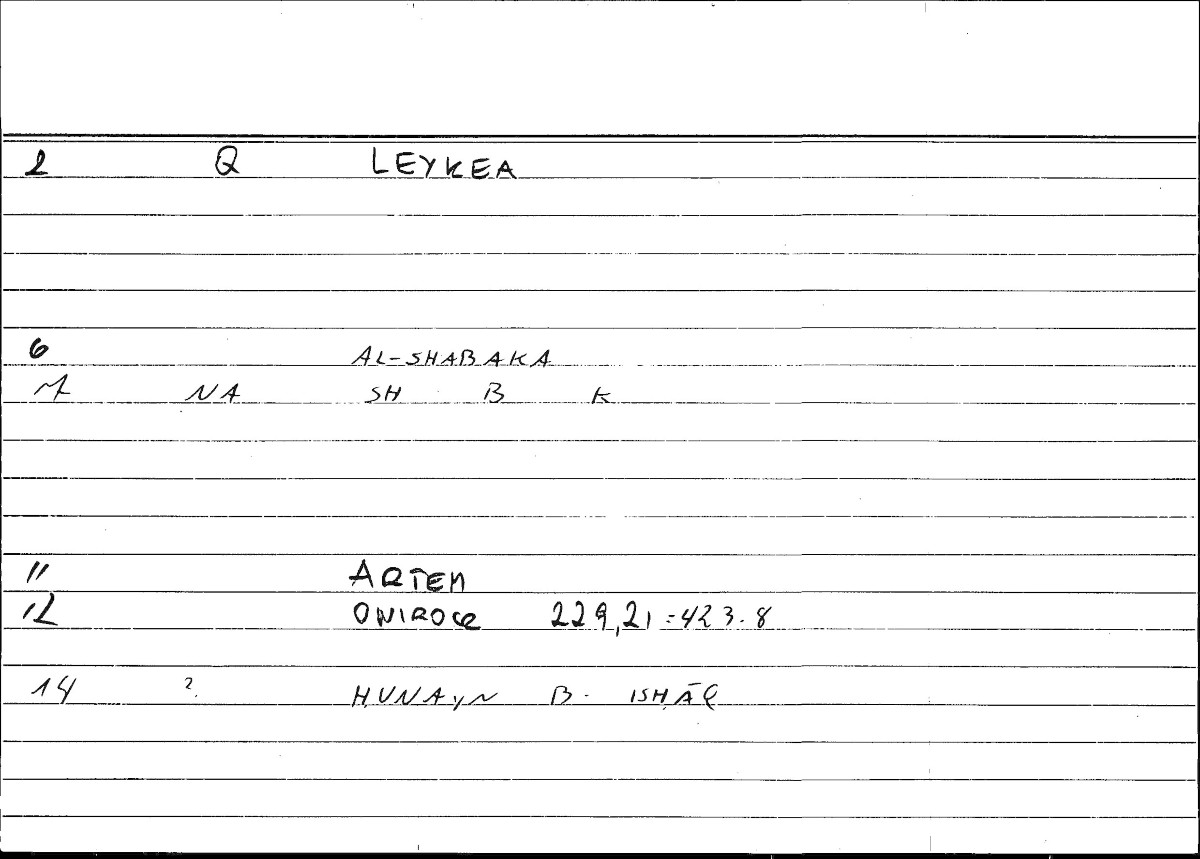 2 Q LEYKEA
6 AL-SHABAKA
7 NA SH B K
11 ARTEM
12 ONIROCR 229,21 = 423.8
14 ?. ḤUNAYN B. ISḤĀQ